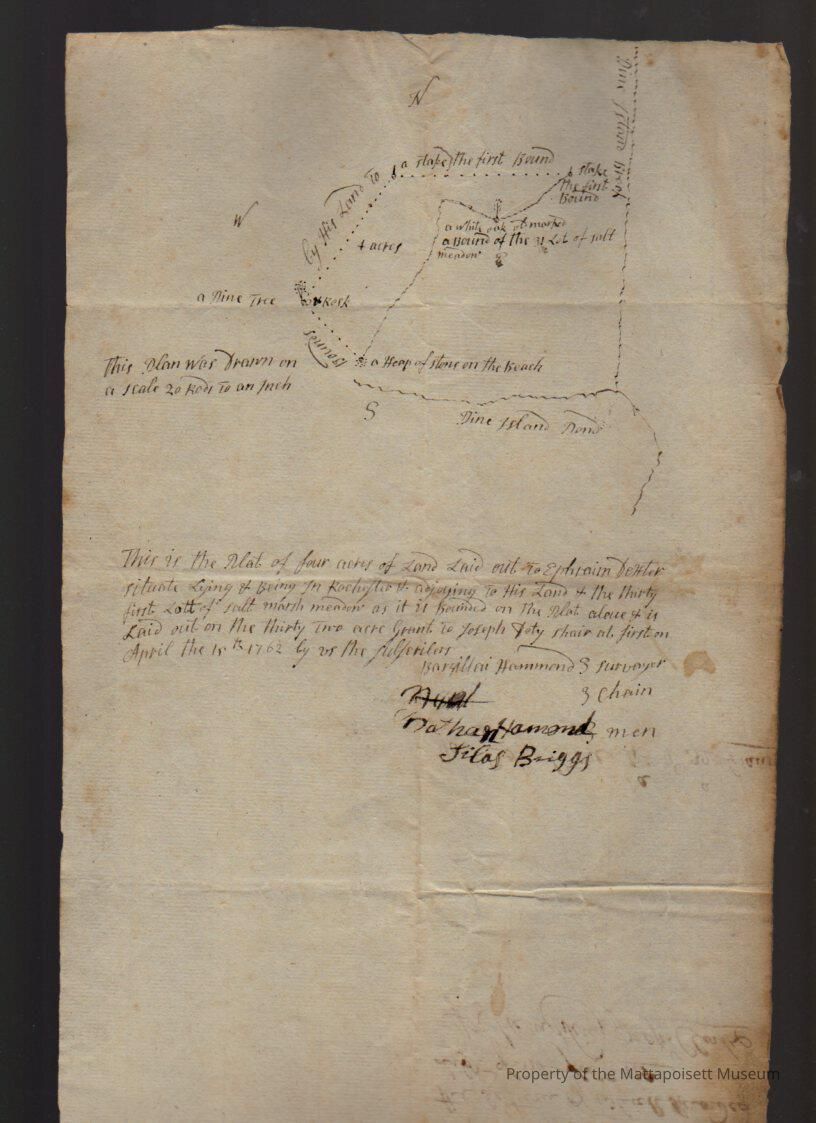 N
Pine Island Brook
a stake the first Bound
stake
the first
Bound
by His Land to
W
a white oak
a Bound of the 31 Lot of salt
meadow
4 acres
a Pine Tree
Rock
Bounds
a Heap of stone on the Beach
This Plan was Drawn on
a scale 20 Rods To an Inch
S
Pine Island Pond
This is the Plat of four acres of Land Laid out to Ephraim Dexter
situate Lying & Being In Rochester & adjoyning to His Land & the thirty
first Lott of salt marsh meadow as it is Bounded on the Plat above & is
Laid out on the thirty Two acre Grant to Joseph Doty shair at first on
April the 15th 1762 by us the subscribers
Barzillai Hammond } surveyor
} Chain
Nathan Hammond } men
Silas Briggs
Property of the Mattapoisett Museum